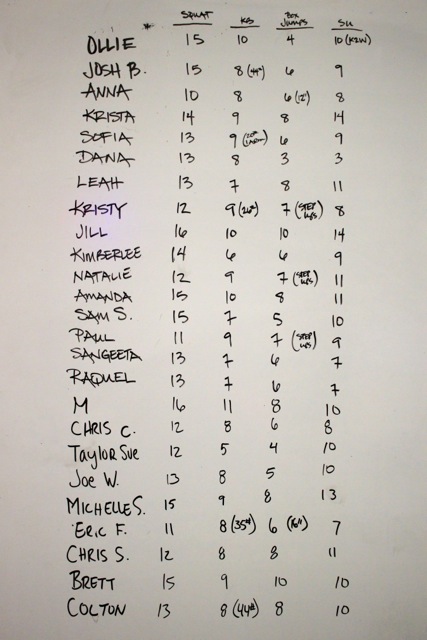 * SQUAT KB BOX JUMPS SU
OLLIE 15 10 4 10 (K2W)
JOSH B. 15 8 (44#) 6 9
ANNA 10 8 6 (12") 8
KRISTA 14 9 8 14
SOFIA 13 9 6 9
DANA 13 8 3 3
LEAH 13 7 8 11
KRISTY 12 9 (26#) 7 (STEP UPS) 8
JILL 16 10 10 14
KIMBERLEE 14 6 6 9
NATALIE 12 9 7 (STEP UPS) 11
AMANDA 15 10 8 11
SAM S. 15 7 5 10
PAUL 11 9 7 (STEP UPS) 9
SANGEETA 13 7 6 7
RAQUEL 13 7 6 7
M 16 11 8 10
CHRIS C. 12 8 6 8
Taylor Sue 12 5 4 10
Joe W. 13 8 5 10
MICHELLE S. 15 9 8 13
ERIC F. 11 8 (35#) 6 (16") 7
CHRIS S. 12 8 8 11
BRETT 15 9 10 10
COLTON 13 8 (44#) 8 10